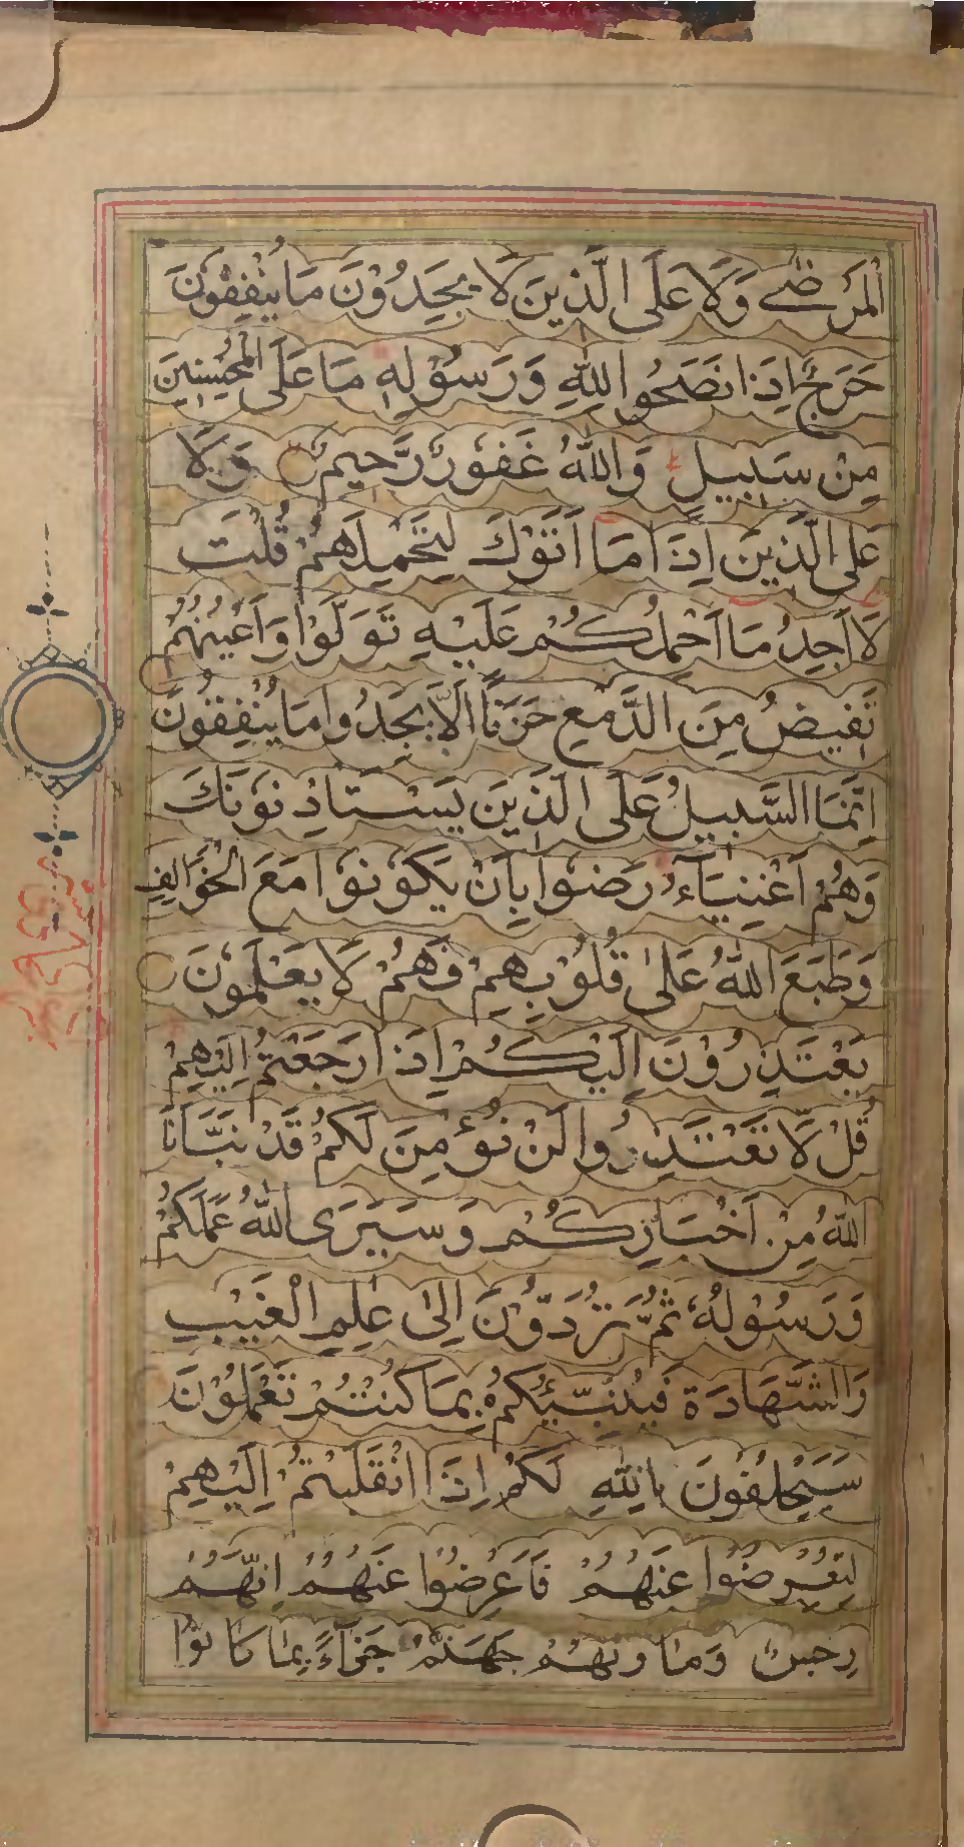 الْمَرْضٰى وَلَا عَلَى الَّذِينَ لَا يَجِدُوْنَ مَا يُنْفِقُوْنَ
حَرَجٌ اِذَا نَصَحُوا لِلّٰهِ وَرَسُوْلِهٖ مَا عَلَى الْمُحْسِنِينَ
مِنْ سَبِيلٍ وَاللّٰهُ غَفُوْرٌ رَّحِيمٌ وَّلَا
عَلَى الَّذِينَ اِذَا مَا اَتَوْكَ لِتَحْمِلَهُمْ قُلْتَ
لَا اَجِدُ مَا اَحْمِلُكُمْ عَلَيْهِ تَوَلَّوْا وَاَعْيُنُهُمْ
تَفِيضُ مِنَ الدَّمْعِ حَزَنًا اَلَّا يَجِدُوا مَا يُنْفِقُونَ
اِنَّمَا السَّبِيلُ عَلَى الَّذِينَ يَسْتَاْذِنُوْنَكَ
وَهُمْ اَغْنِيَآءُ رَضُوْا بِاَنْ يَكُوْنُوْا مَعَ الْخَوَالِفِ
وَطَبَعَ اللّٰهُ عَلٰى قُلُوْبِهِمْ فَهُمْ لَا يَعْلَمُوْنَ
يَعْتَذِرُوْنَ اِلَيْكُمْ اِذَا رَجَعْتُمْ اِلَيْهِمْ
قُلْ لَّا تَعْتَذِرُوا لَنْ نُؤْمِنَ لَكُمْ قَدْ نَبَّاَنَا
اللّٰهُ مِنْ اَخْبَارِكُمْ وَسَيَرَى اللّٰهُ عَمَلَكُمْ
وَرَسُوْلُهٗ ثُمَّ تُرَدُّوْنَ اِلٰى عٰلِمِ الْغَيْبِ
وَالشَّهَادَةِ فَيُنَبِّئُكُمْ بِمَا كُنْتُمْ تَعْمَلُوْنَ
سَيَحْلِفُوْنَ بِاللّٰهِ لَكُمْ اِذَا انْقَلَبْتُمْ اِلَيْهِمْ
لِتُعْرِضُوْا عَنْهُمْ فَاَعْرِضُوْا عَنْهُمْ اِنَّهُمْ
رِجْسٌ وَمَاْوٰىهُمْ جَهَنَّمُ جَزَآءً بِمَا كَانُوْا